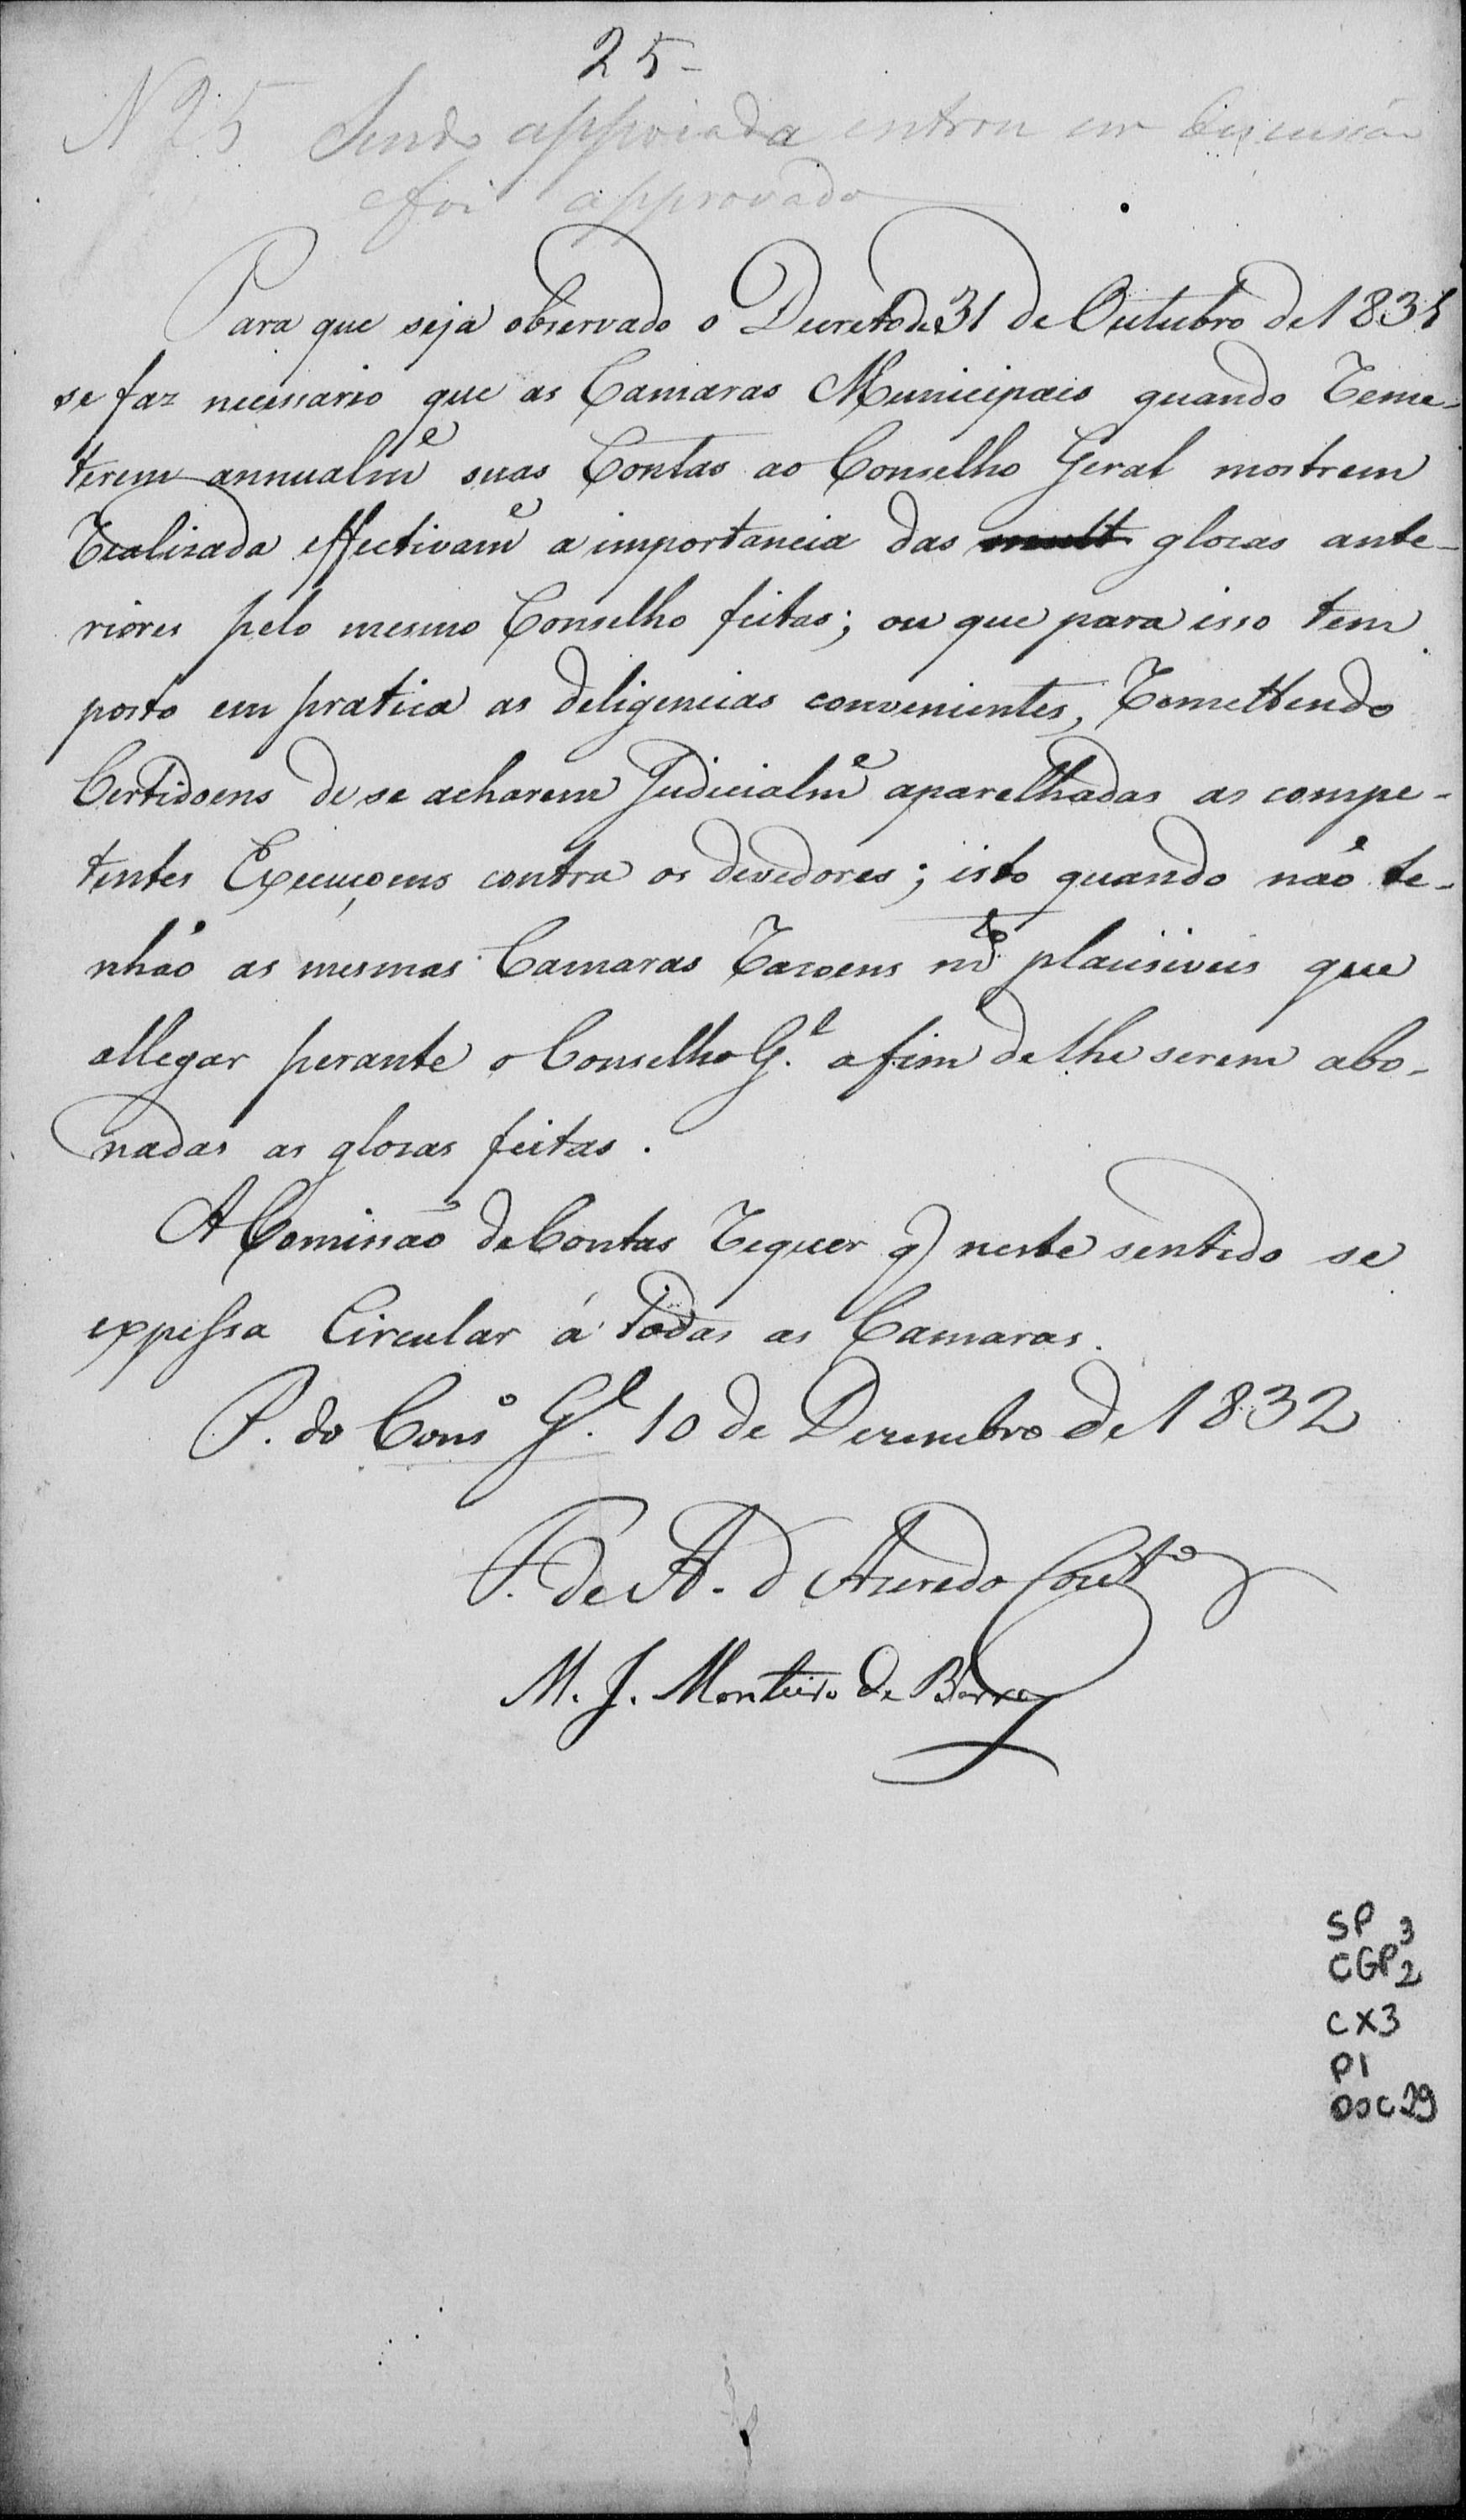 25-
N 25 Sendo appoiada entrou em discussão
e foi approvado
Para que seja observado o Decreto de 31 de Outubro de 1831
se faz necessario que as Camaras Municipais quando reme-
terem annualm.e suas Contas ao Conselho Geral mostrem
realizada effectivam.e a importancia das mult glozas ante-
riores pelo mesmo Conselho feitas; ou que para isso tem
posto em pratica as deligencias convenientes, remettendo
Certidoens de se acharem Judicialm.e aparelhadas as compe-
tentes Execuçoens contra os devedores; isto quando não te-
nhão as mesmas Camaras razoens m.to plausiveis que
allegar perante o Conselho G.l a fim de lhe serem abo-
nadas as glozas feitas.
A Comissão de Contas requer q neste sentido se
expessa Circular á todas as Camaras.
P. do Cons.o G.l 10 de Dezembro de 1832
F. de A. d'Azeredo Cout.o
M. J. Monteiro de Barros
SP 3
CGP 2
CX3
P1
DOC 29